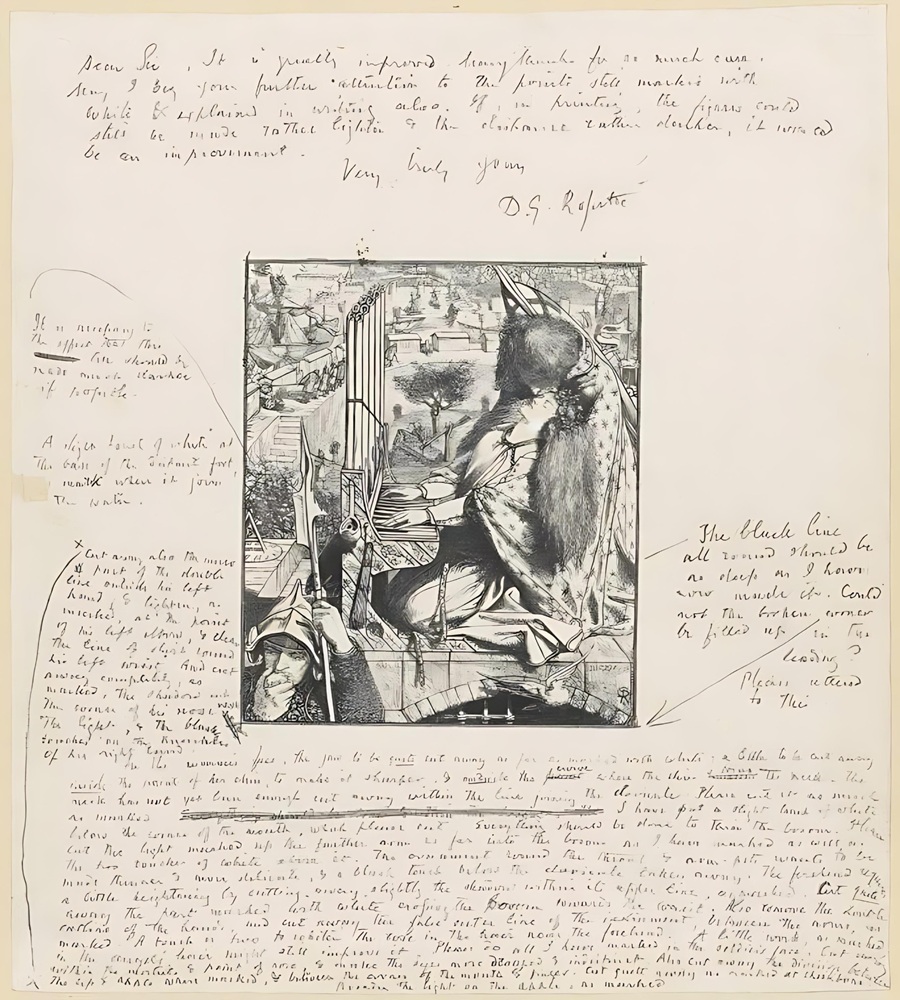 Dear Sir, It is greatly improved having taken so much care.
Now, I beg your further attention to the points still marked with
white & explained in writing also. If, in printing, the figures could
still be made rather lighter & the distance rather darker, it would
be an improvement.
Very truly yours
D.G. Rossetti
It is necessary to
the effect that this
line should be
made much darker
if possible.
A slight touch of white at
the base of the distant fort,
to mark when it joins
the water.
x
Cut away also the inner
part of the double
line outside his left
hand, & lighten, as
marked, at the point
of his left elbow, & clear
the line of light round
his left wrist. And cut
away completely, as
marked, the shadow
the corner of his nose
the light, & the black
touches on the knuckles
of his right hand.
The black line
all round should be
as deep as I have
now made it. Could
not the broken corner
be filled up in the
leading?
Please attend
to this
In the woman's face, the jaw to be quite cut away as far as marked with white: a little to be cut away
inside the point of her chin, to make it sharper, & the curve where the chin the neck. The
neck has not yet been enough cut away within the line joining the clavicle. Please cut it as much
as marked I have put a slight touch of white
below the corner of the mouth, which please cut. Everything should be done to throw the bosom.
cut the light marked up the further arm as far into the bosom as I have marked as well as
the two touches of white above it. The ornament round the throat & arm-pits wants to be
made thinner & more delicate, & a black touch below the clavicle taken away. The forehead
a little heightening by cutting away slightly the shadow within its upper line, as marked. Cut quite
away the part marked with white crossing the bosom towards the waist. Also remove the double
outline of the hands, and cut away the false outer line of the instrument, between the arms, as
marked. A touch or two to lighten the rose in the hair near the forehead. A little work, as marked,
in the angel's hair might still improve it. Please do all I have marked in the soldier's face. Cut
within the nostrils & point of nose & make the eyes more Also cut away the division between
the lip & where marked, & between the corner of the mouth & finger. Cut quite away as marked at cheekbone.
Broaden the light on the apple, as marked